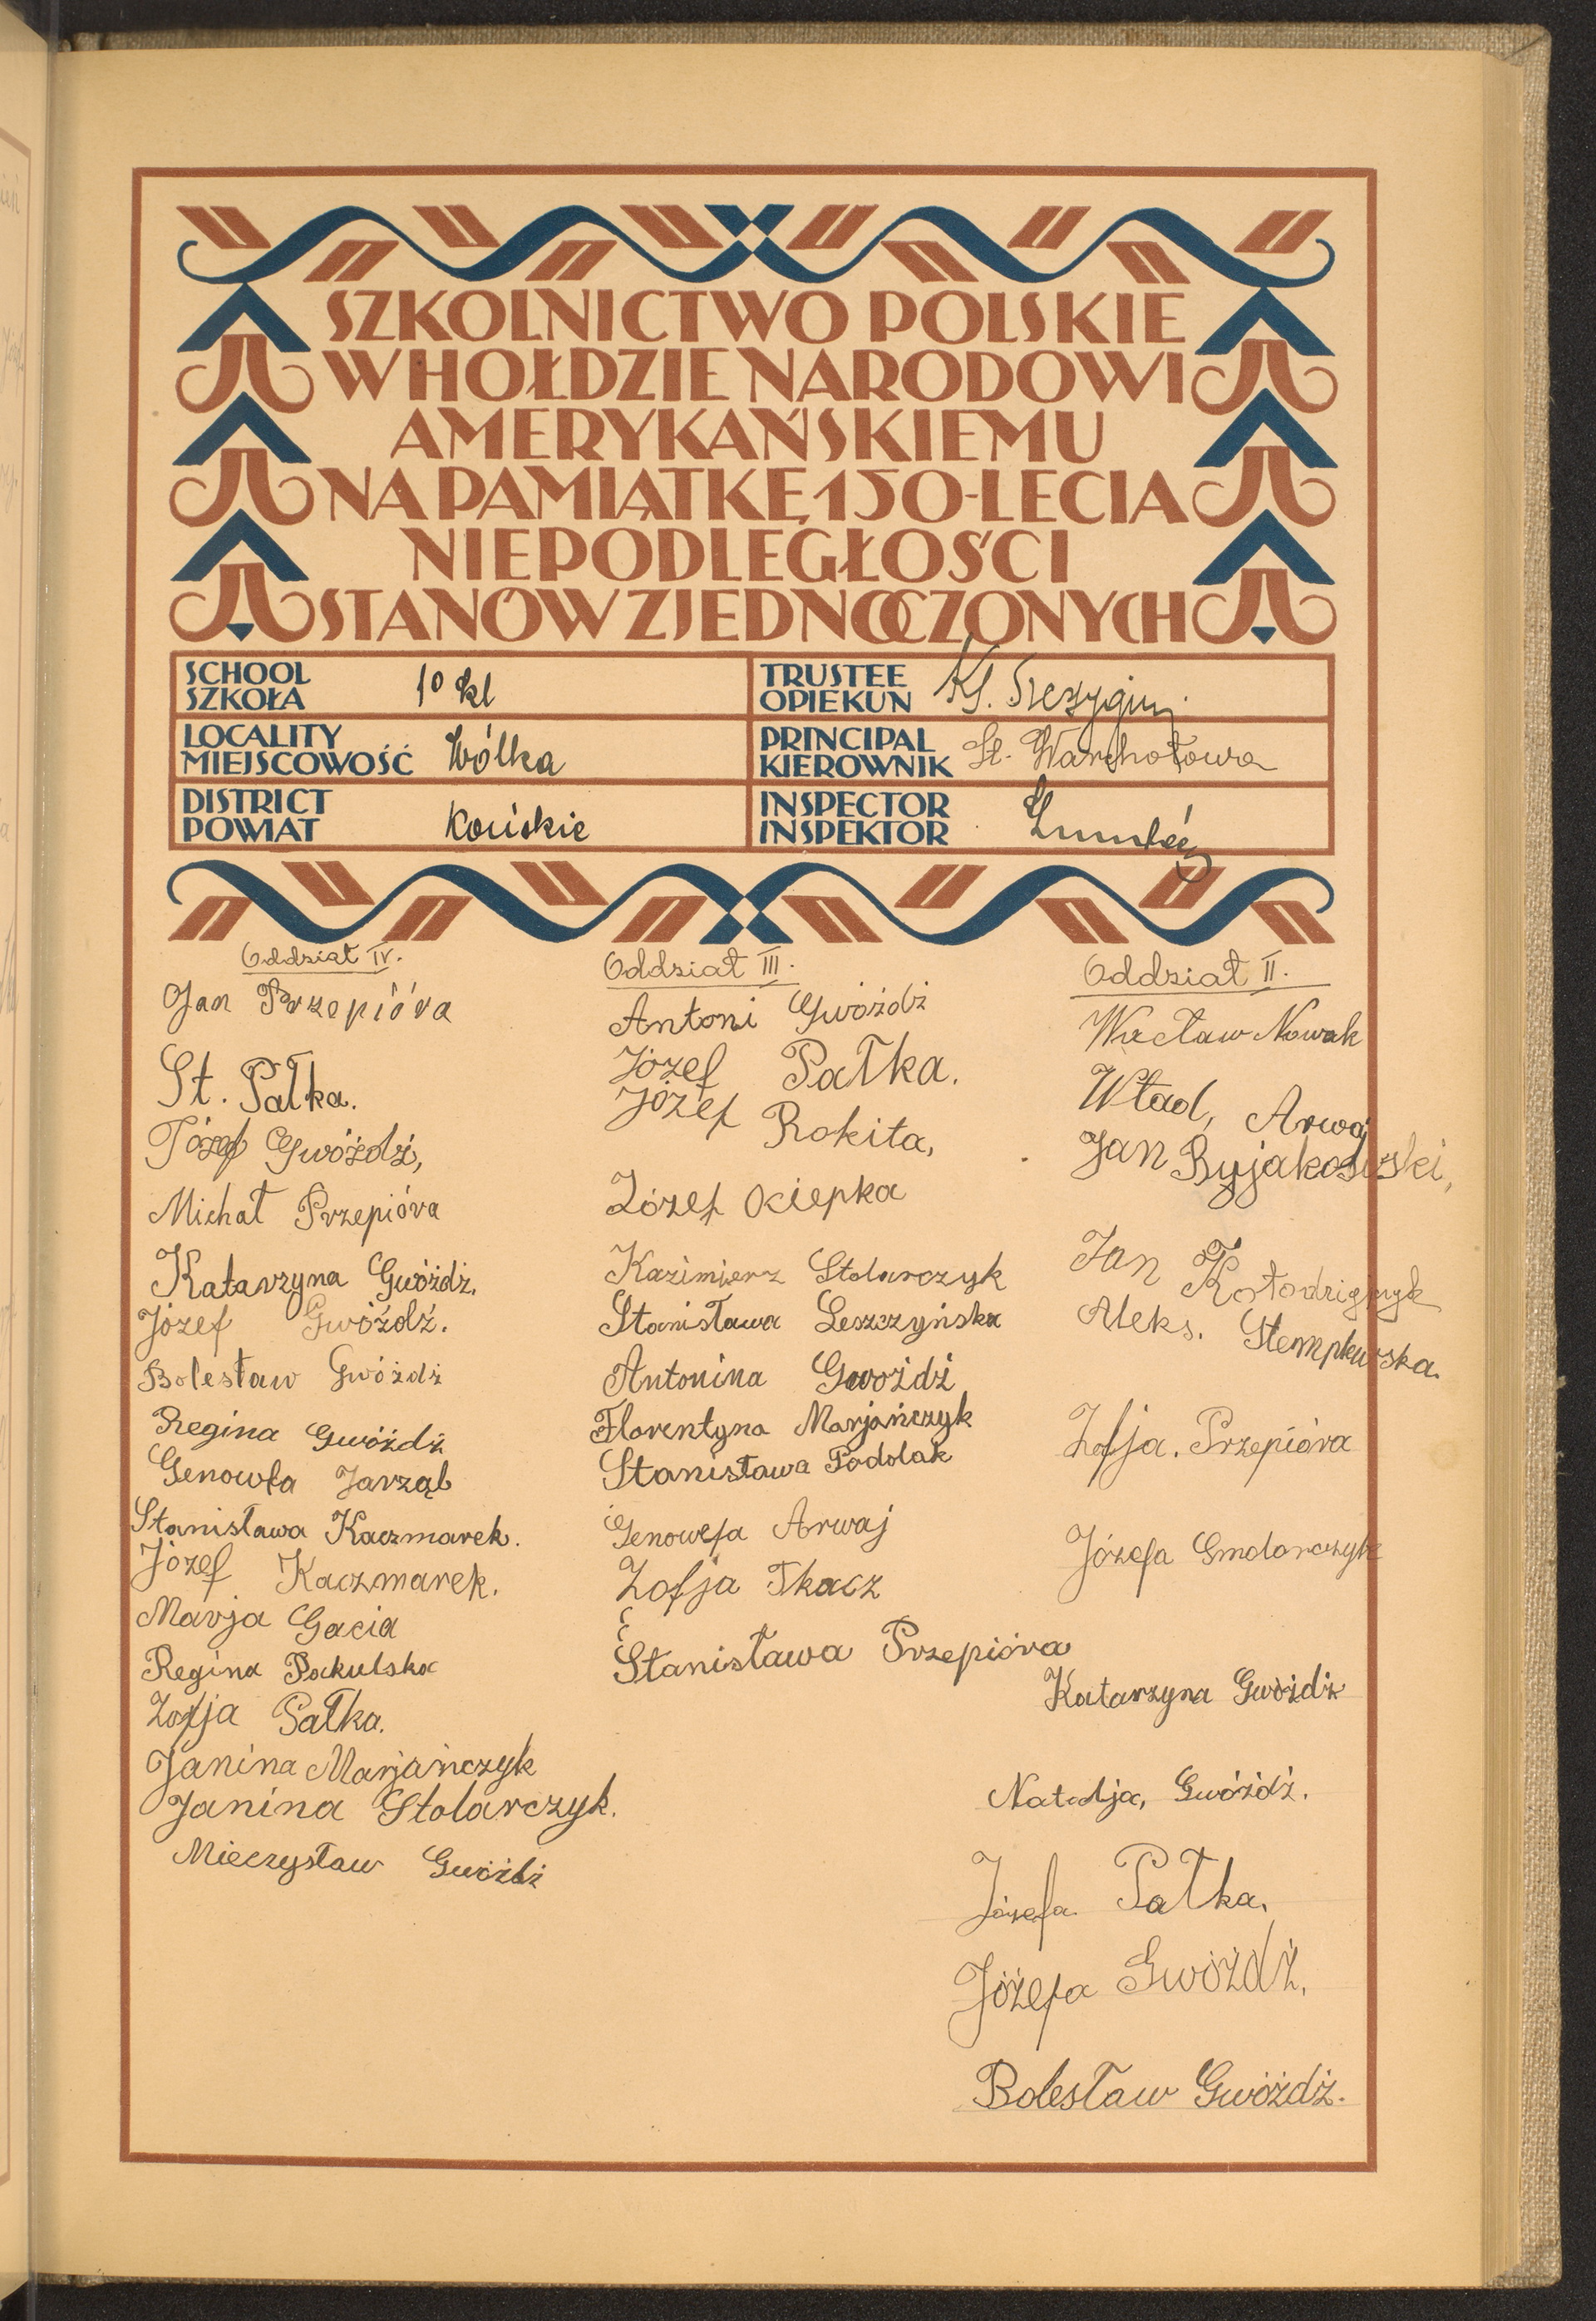 SZKOLNICTWO POLSKIE
W HOŁDZIE NARODOWI
AMERYKAŃSKIEMU
NA PAMIĄTKĘ 150-LECIA
NIEPODLEGŁOŚCI
STANÓW ZJEDNOCZONYCH
SCHOOL
SZKOŁA
10 kl
TRUSTEE
OPIEKUN
LOCALITY
MIEJSCOWOŚĆ
Wólka
PRINCIPAL
KIEROWNIK
St. Warchołowa
DISTRICT
POWIAT
Końskie
INSPECTOR
INSPEKTOR
Oddział IV.
Jan Przepióra
St. Pałka.
Józef Gwóźdź,
Michał Przepióra
Katarzyna Gwóźdź.
Józef Gwóźdź.
Bolesław Gwóźdź
Regina Gwóźdź
Genowfa Jarząb
Stanisława Kaczmarek.
Józef Kaczmarek.
Marja Gacia
Regina Pakulska
Zofja Pałka.
Janina Marjańczyk
Janina Stolarczyk.
Mieczysław Gwóźdź
Oddział III.
Antoni Gwóźdź
Józef Pałka.
Józef Rokita,
Józef Kiepka
Kazimierz Stolarczyk
Stanisława Leszczyńska
Antonina Gwoźdź
Florentyna Marjańczyk
Stanisława Podolak
Genowefa Arwaj
Zofja Tkacz
Stanisława Przepióra
Oddział II.
Wacław Nowak
Wład, Arwaj
Jan
Jan Kołodziejczyk
Aleks. Stempkurska.
Zofja. Przepióra
Józefa Smolarczyk
Katarzyna Gwóźdź
Natalja, Gwóźdź.
Józefa Pałka.
Józefa Gwóźdź.
Bolesław Gwóźdź.